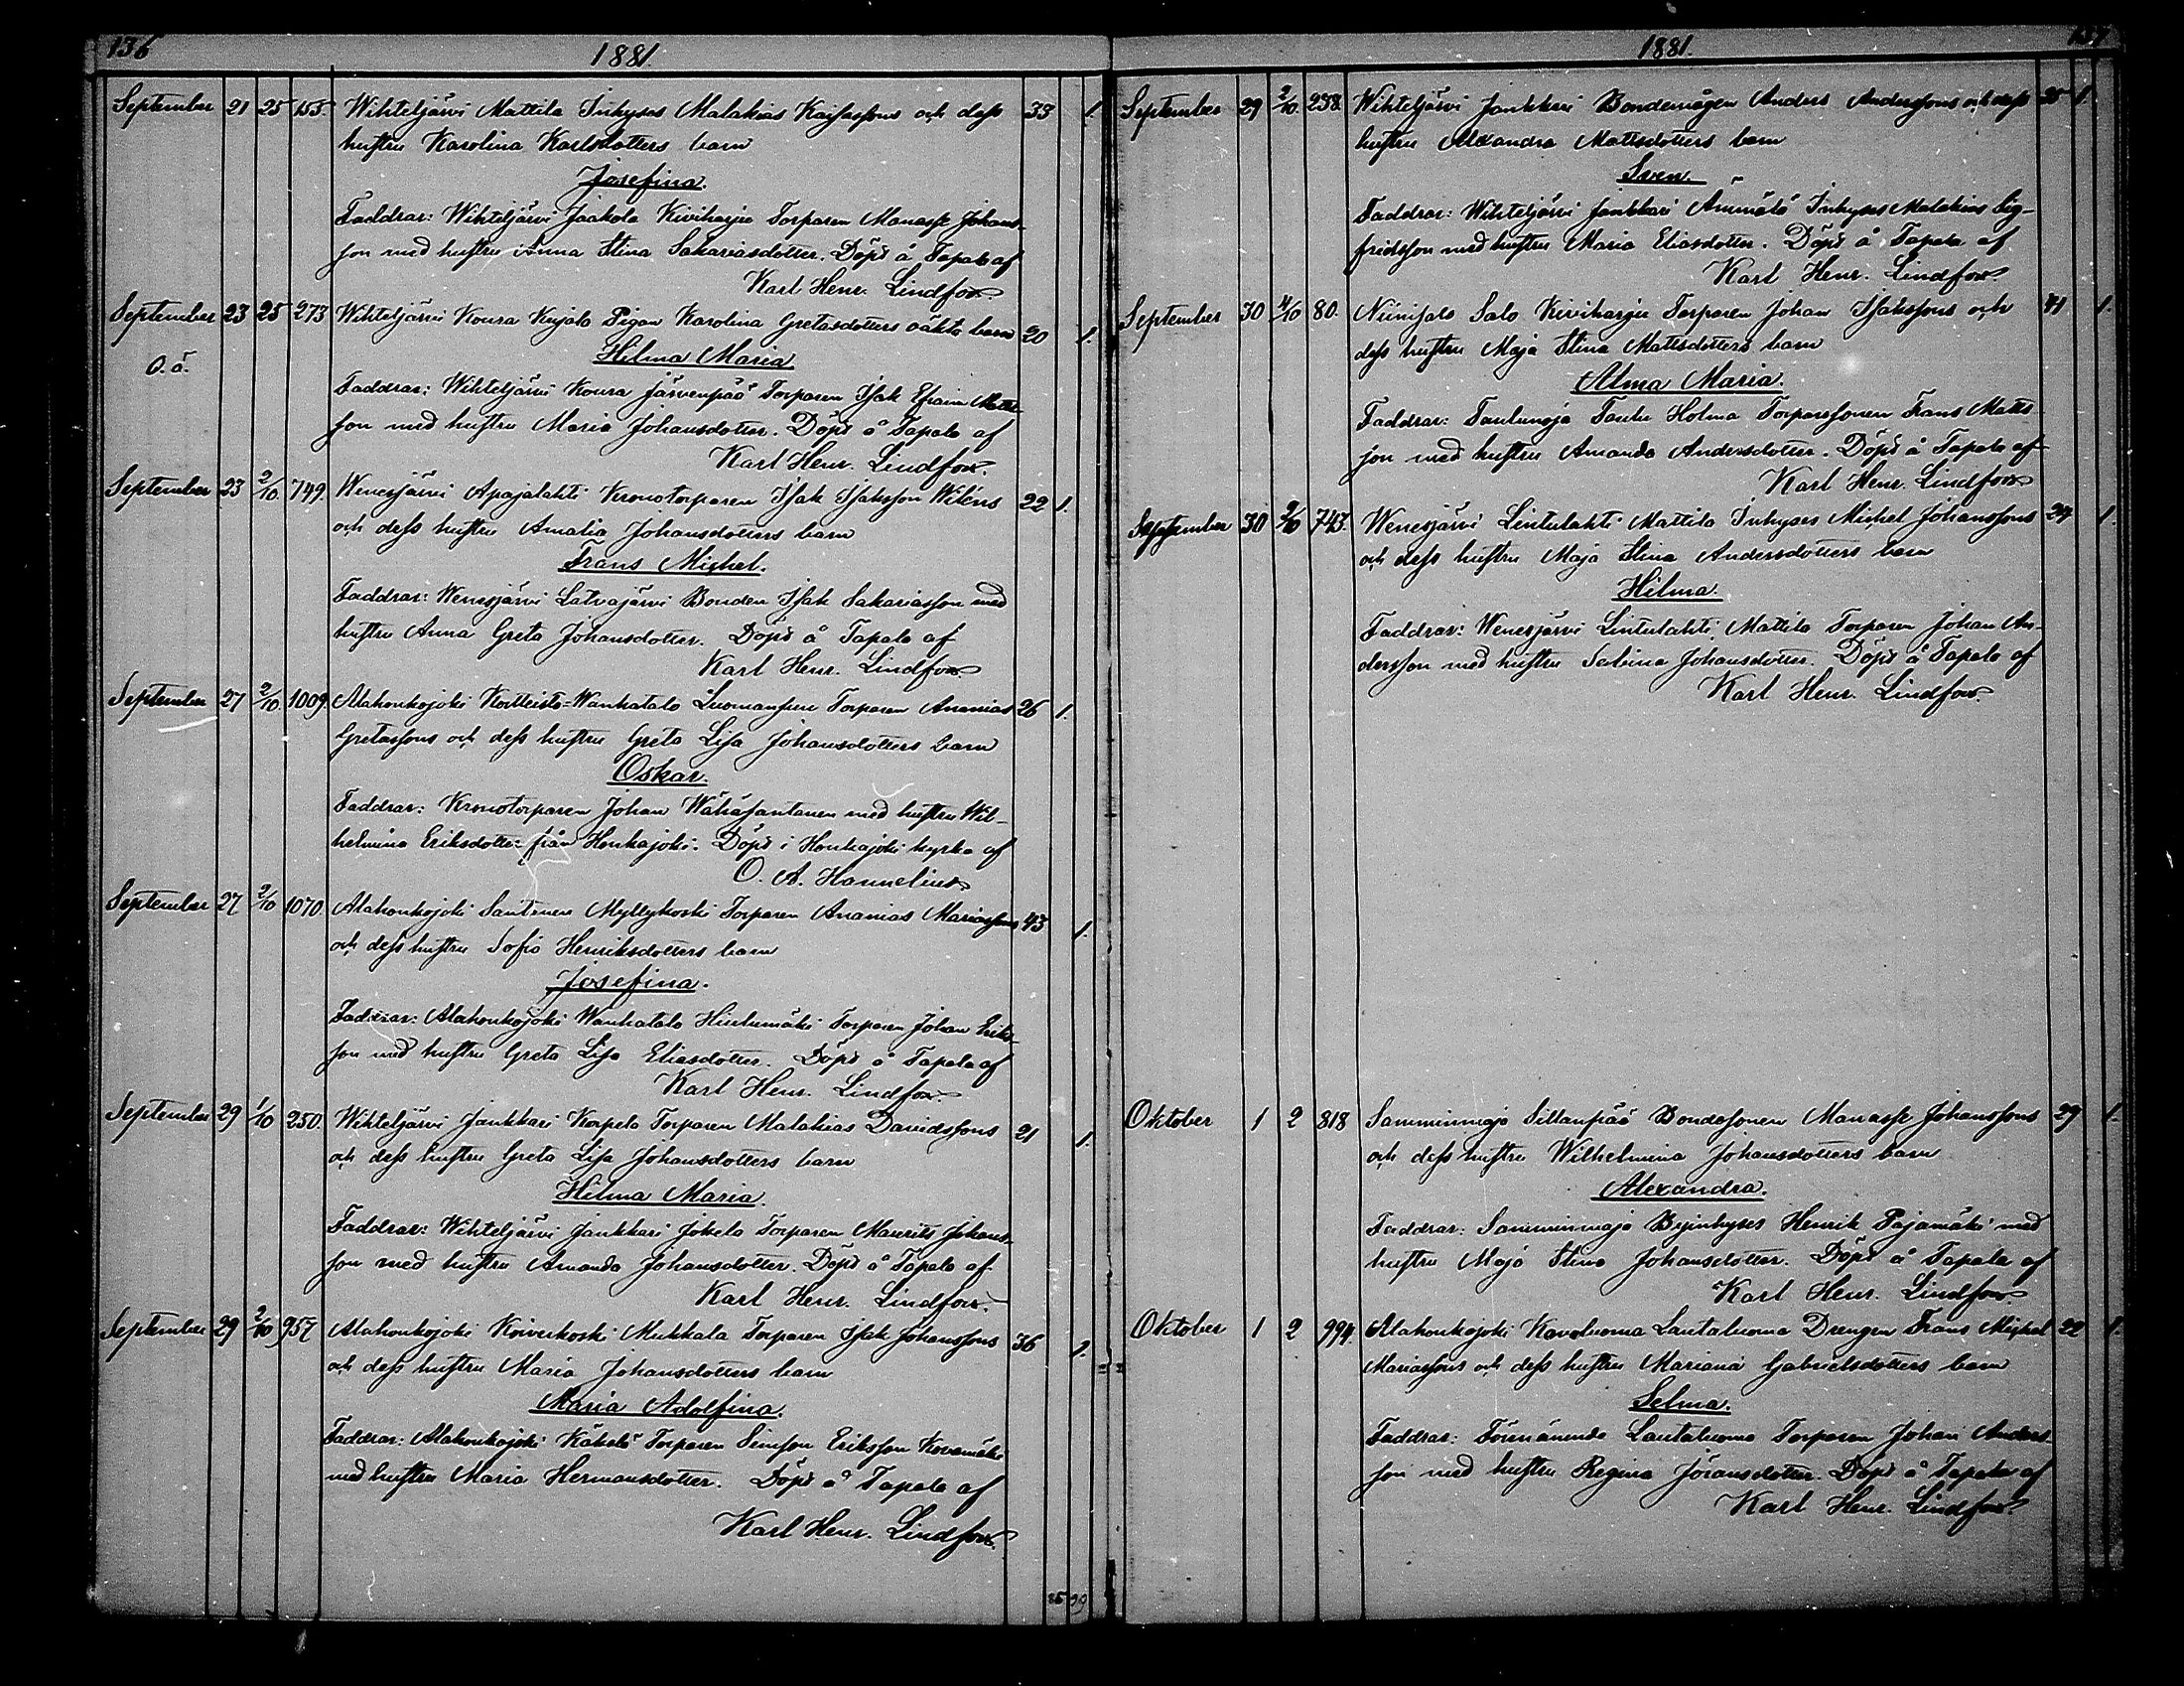 136
1881.
September 21 25 155. Wihteljärvi Mattila Inhyses Malakias Kaisassons och dess 33 1.
hustru Karolina Karlsdotters barn
Josefina.
Faddrar: Wihteljärvi Jaakola Kiviharju Torparen Manasse Johans-
son med hustru Anna Stina Sakariasdotter. Döpt å Tapala af
Karl Henr. Lindfors.
September 23 25 273 Wihteljärvi Koura Kujala Pigan Karolina Gretasdotters oäkta barn 20 1.
O.ä.
Hilma Maria.
Faddrar: Wihteljärvi Koura Järvenpää Torparen Isak Efraim Matts-
son med hustru Maria Johansdotter. Döpt å Tapala af
Karl Henr. Lindfors.
September 23 2/10. 749. Wenesjärvi Apajalahti Kronotorparen Isak Isaksson Wiléns 22 1.
och dess hustru Amalia Johansdotters barn
Frans Michel.
Faddrar: Wenesjärvi Latvajärvi Bonden Isak Sakariasson med
hustru Anna Greta Johansdotter. Döpt å Tapala af
Karl Henr. Lindfors
September 27 2/10 1009. Alahonkojoki Kortteisto=Wanhatalo Luomansuu Torparen Ananias 26 1.
Gretassons och dess hustru Greta Lisa Johansdotters barn
Oskar.
Faddrar: Kronotorparen Johan Wähäsantanen med hustru Wil-
helmina Eriksdotter från Honkajoki. Döpt i Honkajoki kyrka af
O. A. Hannelius
September 27 2/10 1070. Alahonkojoki Santanen Myllykoski Torparen Ananias Mariassons 43 1.
och dess hustru Sofia Henriksdotters barn
Josefina.
Faddrar: Alahonkojoki Wanhatalo Hietumäki Torparen Johan Eriks-
son med hustru Greta Lisa Eliasdotter. Döpt å Tapala af
Karl Henr. Lindfors.
September 29 1/10 250. Wihteljärvi Jankkari Korpela Torparen Malakias Davidssons 21 1.
och dess hustru Greta Lisa Johansdotters barn
Hilma Maria.
Faddrar: Wihteljärvi Jankkari Jokela Torparen Maurits Johans-
son med hustru Amanda Johansdotter. Döpt å Tapala af
Karl Henr. Lindfors.
September 29 2/10 957 Alahonkojoki Koivukoski Mukkala Torparen Isak Johanssons 36 1.
och dess hustru Maria Johansdotters barn
Maria Adolfina.
Faddrar: Alahonkojoki Käkelä Torparen Simson Eriksson Kovamäki
med hustru Maria Hermansdotter. Döpt å Tapala af
Karl Henr. Lindfors.
25 39
137
1881.
September 29 2/10. 238. Wihteljärvi Jankkari Bondemågen Anders Anderssons och dess 25 1.
hustru Alexandra Mattsdotters barn
Sven.
Faddrar: Wihteljärvi Jankkari Ämmälä Inhyses Malakias Sig-
fridsson med hustru Maria Eliasdotter. Döpt å Tapala af
Karl Henr. Lindfors.
September 30 4/10 80. Niinisalo Salo Kiviharju Torparen Johan Isakssons och 41 1.
dess hustru Maja Stina Mattsdotters barn
Alma Maria.
Faddrar: Taulunoja Taulu Holma Torparesonen Frans Matts-
son med hustru Amanda Andersdotter. Döpt å Tapala af
Karl Henr. Lindfors
September 30 2/10 743. Wenesjärvi Lintulahti Mattila Inhyses Michel Johanssons 34 1.
och dess hustru Maja Stina Andersdotters barn
Hilma.
Faddrar: Wenesjärvi Lintulahti Mattila Torparen Johan An-
dersson med hustru Sabina Johansdotter. Döpt å Tapala af
Karl Henr. Lindfors.
Oktober 1 2 818 Samminmaja Sillanpää Bondesonen Manasse Johanssons 29 1.
och dess hustru Wilhelmina Johansdotters barn
Alexandra.
Faddrar: Samminmaja Byinhyses Henrik Pajamäki med
hustru Maja Stina Johansdotter. Döpt å Tapala af
Karl Henr. Lindfors.
Oktober 1 2 994. Alahonkojoki Kovaluoma Lautaluoma Drengen Frans Michel 22 1.
Mariassons och dess hustru Mariana Gabrielsdotters barn
Selma.
Faddrar: Förenämnda Lautaluoma Torparen Johan Anders-
son med hustru Regina Göransdotter. Döpt å Tapala af
Karl Henr. Lindfors.